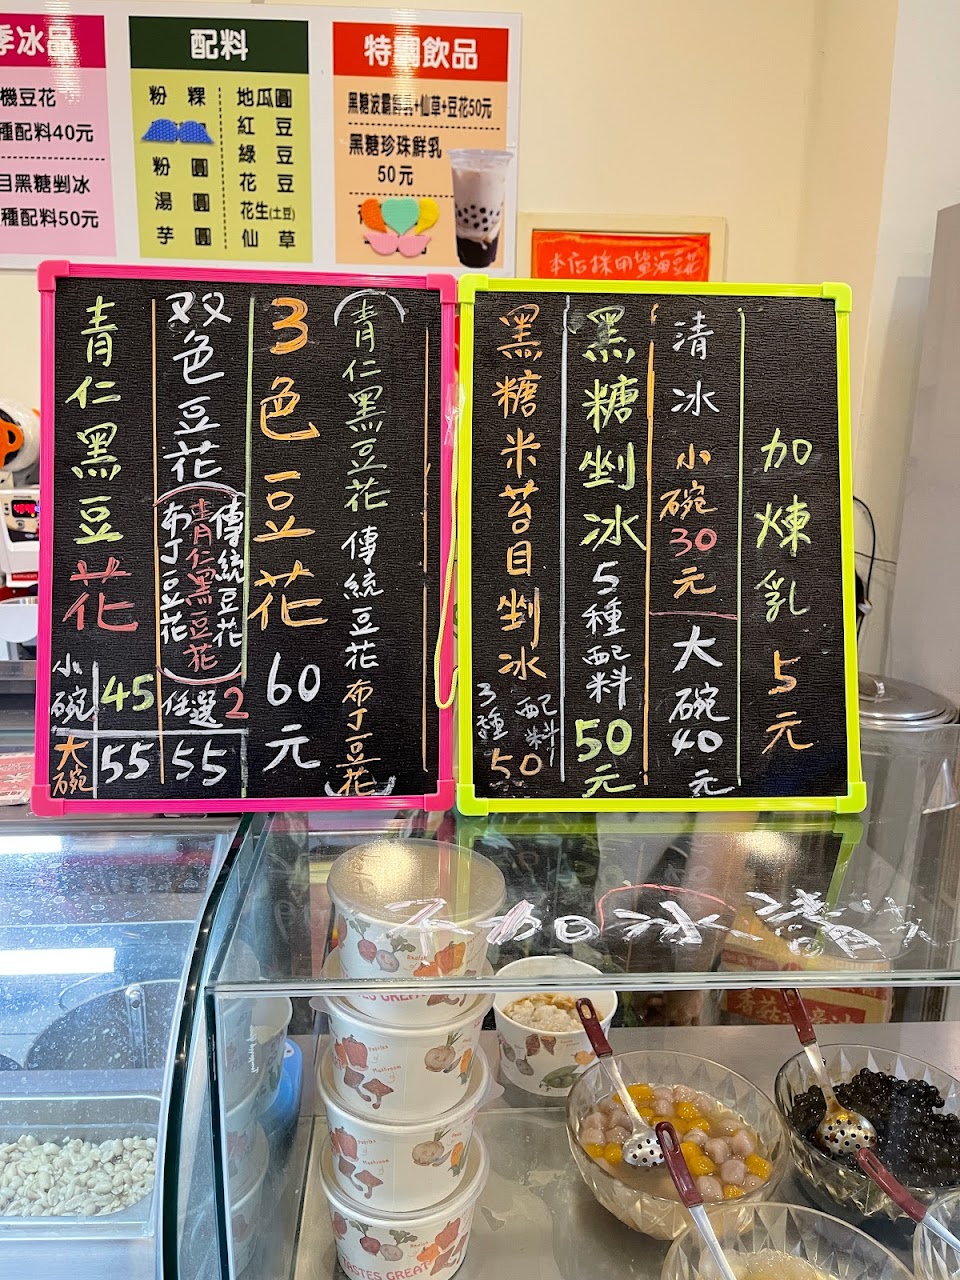 季冰品
機豆花
種配料40元
目黑糖剉冰
種配料50元
配料
粉粿
粉圓
湯圓
芋圓
地瓜圓
紅豆
綠豆
花豆
花生(土豆)
仙草
特調飲品
黑糖波霸鮮乳+仙草+豆花50元
黑糖珍珠鮮乳
50元
本店採用
青仁黑豆花
小碗 45
大碗 55
双色豆花
傳統豆花
青仁黑豆花
布丁豆花
任選2
55
3色豆花
60元
(青仁黑豆花 傳統豆花 布丁豆花)
黑糖米苔目剉冰
3種配料
50
黑糖剉冰
5種配料
50元
清冰 小碗30元
大碗40元
加煉乳5元
不加冰請
TASTES GREAT